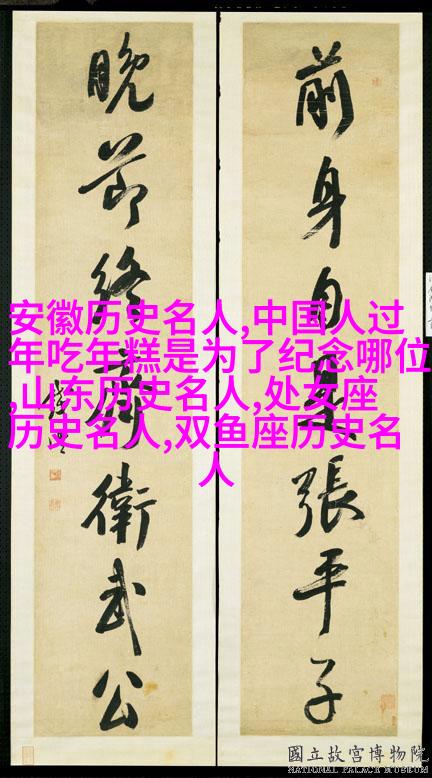 安徽历史名人,中国人过
年吃年糕是为了纪念哪位
,山东历史名人,处女座
历史名人,双鱼座历史名
人
前身自張平子
晚節終衛武公
國立故宮博物院
NATIONAL PALACE MUSEUM